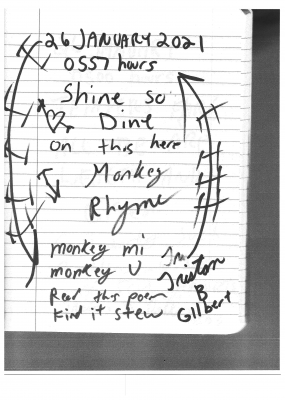 26 JANUARY 2021
0557 hours
Shine so
Dine
on this here
Monkey
Rhyme
monkey mi
monkey U
Read this poem
Kind it stew
Triston
B
Gilbert